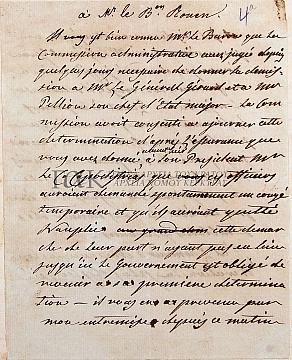 à Mr. le Bon Rouen. 4a
Il vous est bien connu Mr. le Baron que la
Commission administrative avait jugé depuis
quelques jours nécessaire de donner la démis-
sion à Mr. le Général Gérard et à Mr.
Pellion son chef d'Etat major – La Com-
mission avoit consenti à ajourner cette
détermination d'après l'assurance que
vous avez donnée à son Président Mr.
le que officiers
auraient demandé spontanément un congé
temporaire et qu'ils auraient quitté
Nauplie cette démar-
che de leur part n'ayant pas eu lieu
jusqu'ici le Gouvernement est obligé de
revenir à sa première détermina-
tion – il vous en a prévenu par
mon entremise depuis ce matin